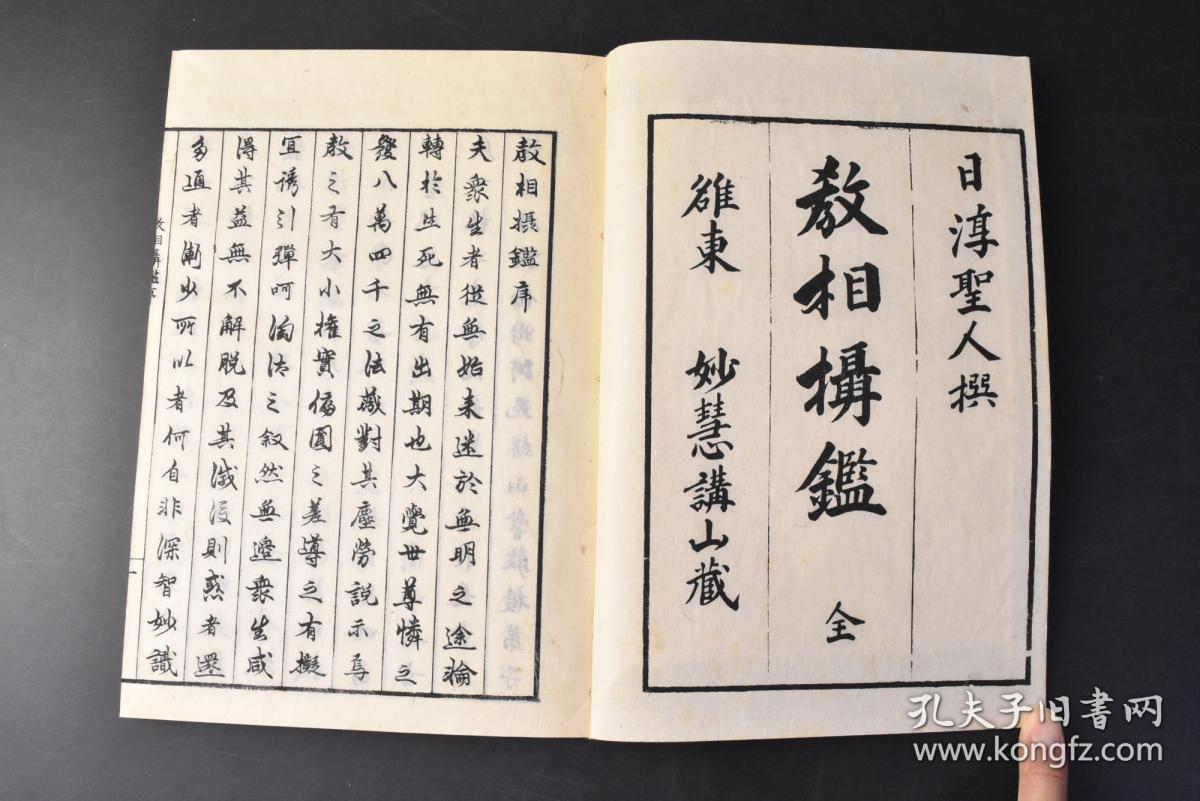 日淳聖人撰
教相攝鑑 全
雒東 妙慧講山藏
教相攝鑑序
夫衆生者從無始来迷於無明之途輪
轉於生死無有出期也大覺世尊憐之
發八萬四千之法藏對其塵勞説示焉
教之有大小權實偏圓之差導之有擬
宜誘引彈呵淘汰之叙然無邊衆生咸
得其益無不解脱及其滅後則惑者還
多通者漸少所以者何自非深智妙識
教相攝鑑序 一
孔夫子旧书网
www.kongfz.com